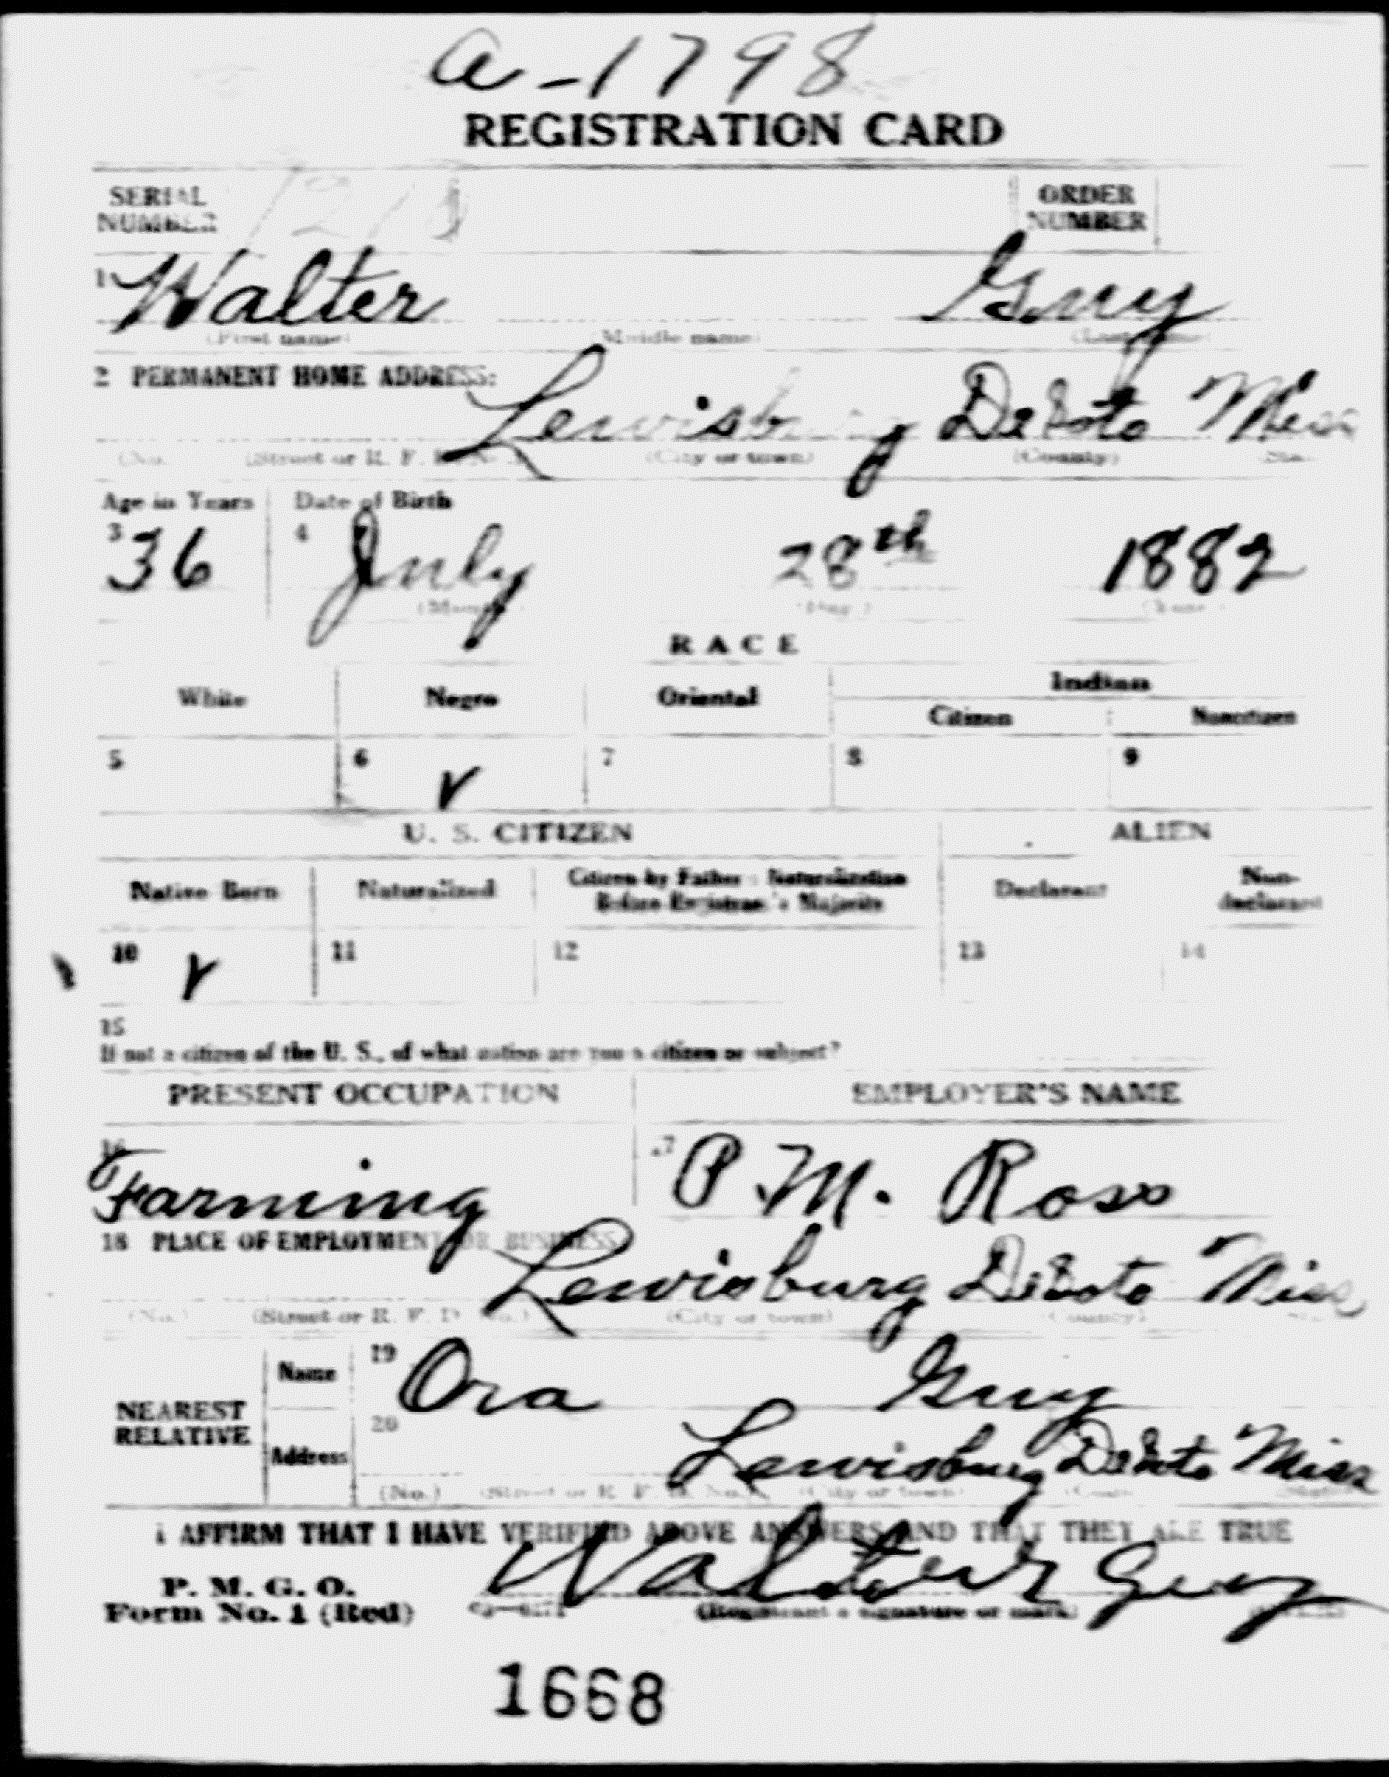 a-1798
REGISTRATION CARD
SERIAL NUMBER ORDER NUMBER
1 Walter Guy
(First name) (Middle name) (Last name)
2 PERMANENT HOME ADDRESS:
Lewisburg DeSoto Miss
(No. (Street or R. F. D. No.) (City or town) (County) (State)
Age in Years Date of Birth
3 36 4 July 28th 1882
(Month) (Day) (Year)
RACE
White Negro Oriental Indian
Citizen Noncitizen
5 6 ✓ 7 8 9
U. S. CITIZEN ALIEN
Native Born Naturalized Citizen by Father's Naturalization Before Registrant's Majority Declarant Non-declarant
10 ✓ 11 12 13 14
15
If not a citizen of the U. S., of what nation are you a citizen or subject?
PRESENT OCCUPATION EMPLOYER'S NAME
16 Farming 17 P. M. Ross
18 PLACE OF EMPLOYMENT OR BUSINESS
Lewisburg DeSoto Miss
(No.) (Street or R. F. D. No.) (City or town) (County)
NEAREST RELATIVE
Name 19 Ora Guy
Address 20 Lewisburg DeSoto Miss
(No.) (Street or R. F. D. No.) (City or town) (County) (State)
I AFFIRM THAT I HAVE VERIFIED ABOVE ANSWERS AND THAT THEY ARE TRUE
P. M. G. O.
Form No. 1 (Red) Walter Guy
(Registrant's signature or mark)
1668